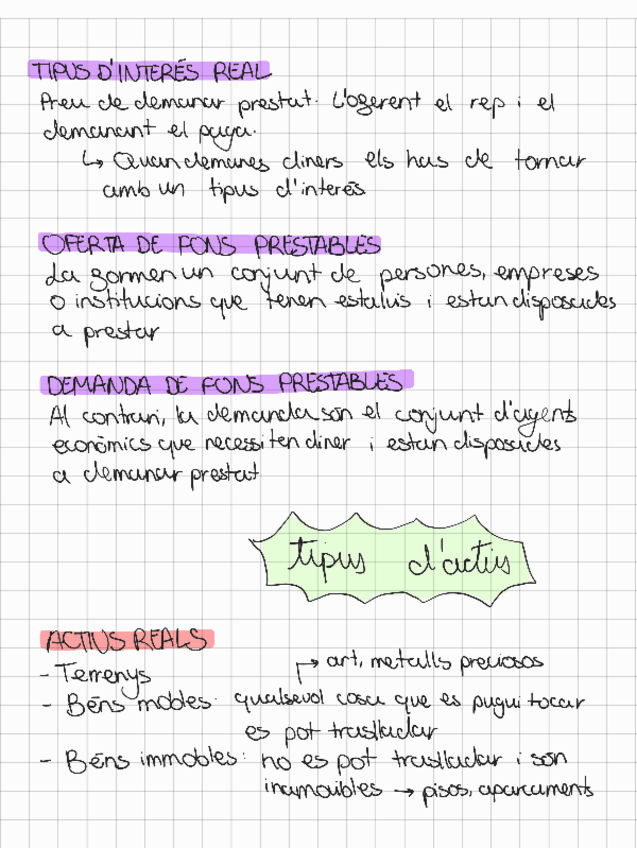 TIPUS D'INTERÉS REAL
Preu de demanar prestat. L'oferent el rep i el
demanant el paga.
↳ Quan demanes diners els has de tornar
amb un tipus d'interés
OFERTA DE FONS PRESTABLES
La formen un conjunt de persones, empreses
o institucions que tenen estalvis i estan disposades
a prestar
DEMANDA DE FONS PRESTABLES
Al contrari, la demanda són el conjunt d'agents
econòmics que necessiten diner i estan disposades
a demanar prestat
tipus d'actius
ACTIUS REALS
- Terrenys
→ art, metalls preciosos
- Béns mobles: qualsevol cosa que es pugui tocar
es pot traslladar
- Béns immobles: no es pot traslladar i són
inamovibles → pisos, aparcaments